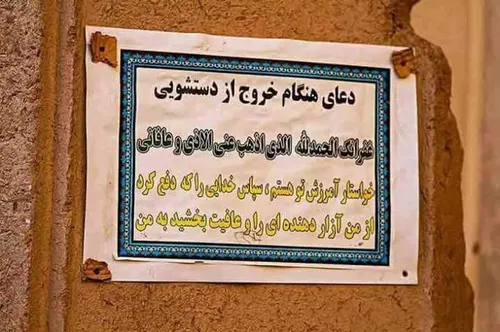 دعای هنگام خروج از دستشویی
غفرانک الحمدلله الذی اذهب عنی الاذی و عافانی
خواستار آمرزش تو هستم ، سپاس خدایی را که دفع کرد
از من آزار دهنده ای را و عافیت بخشید به من